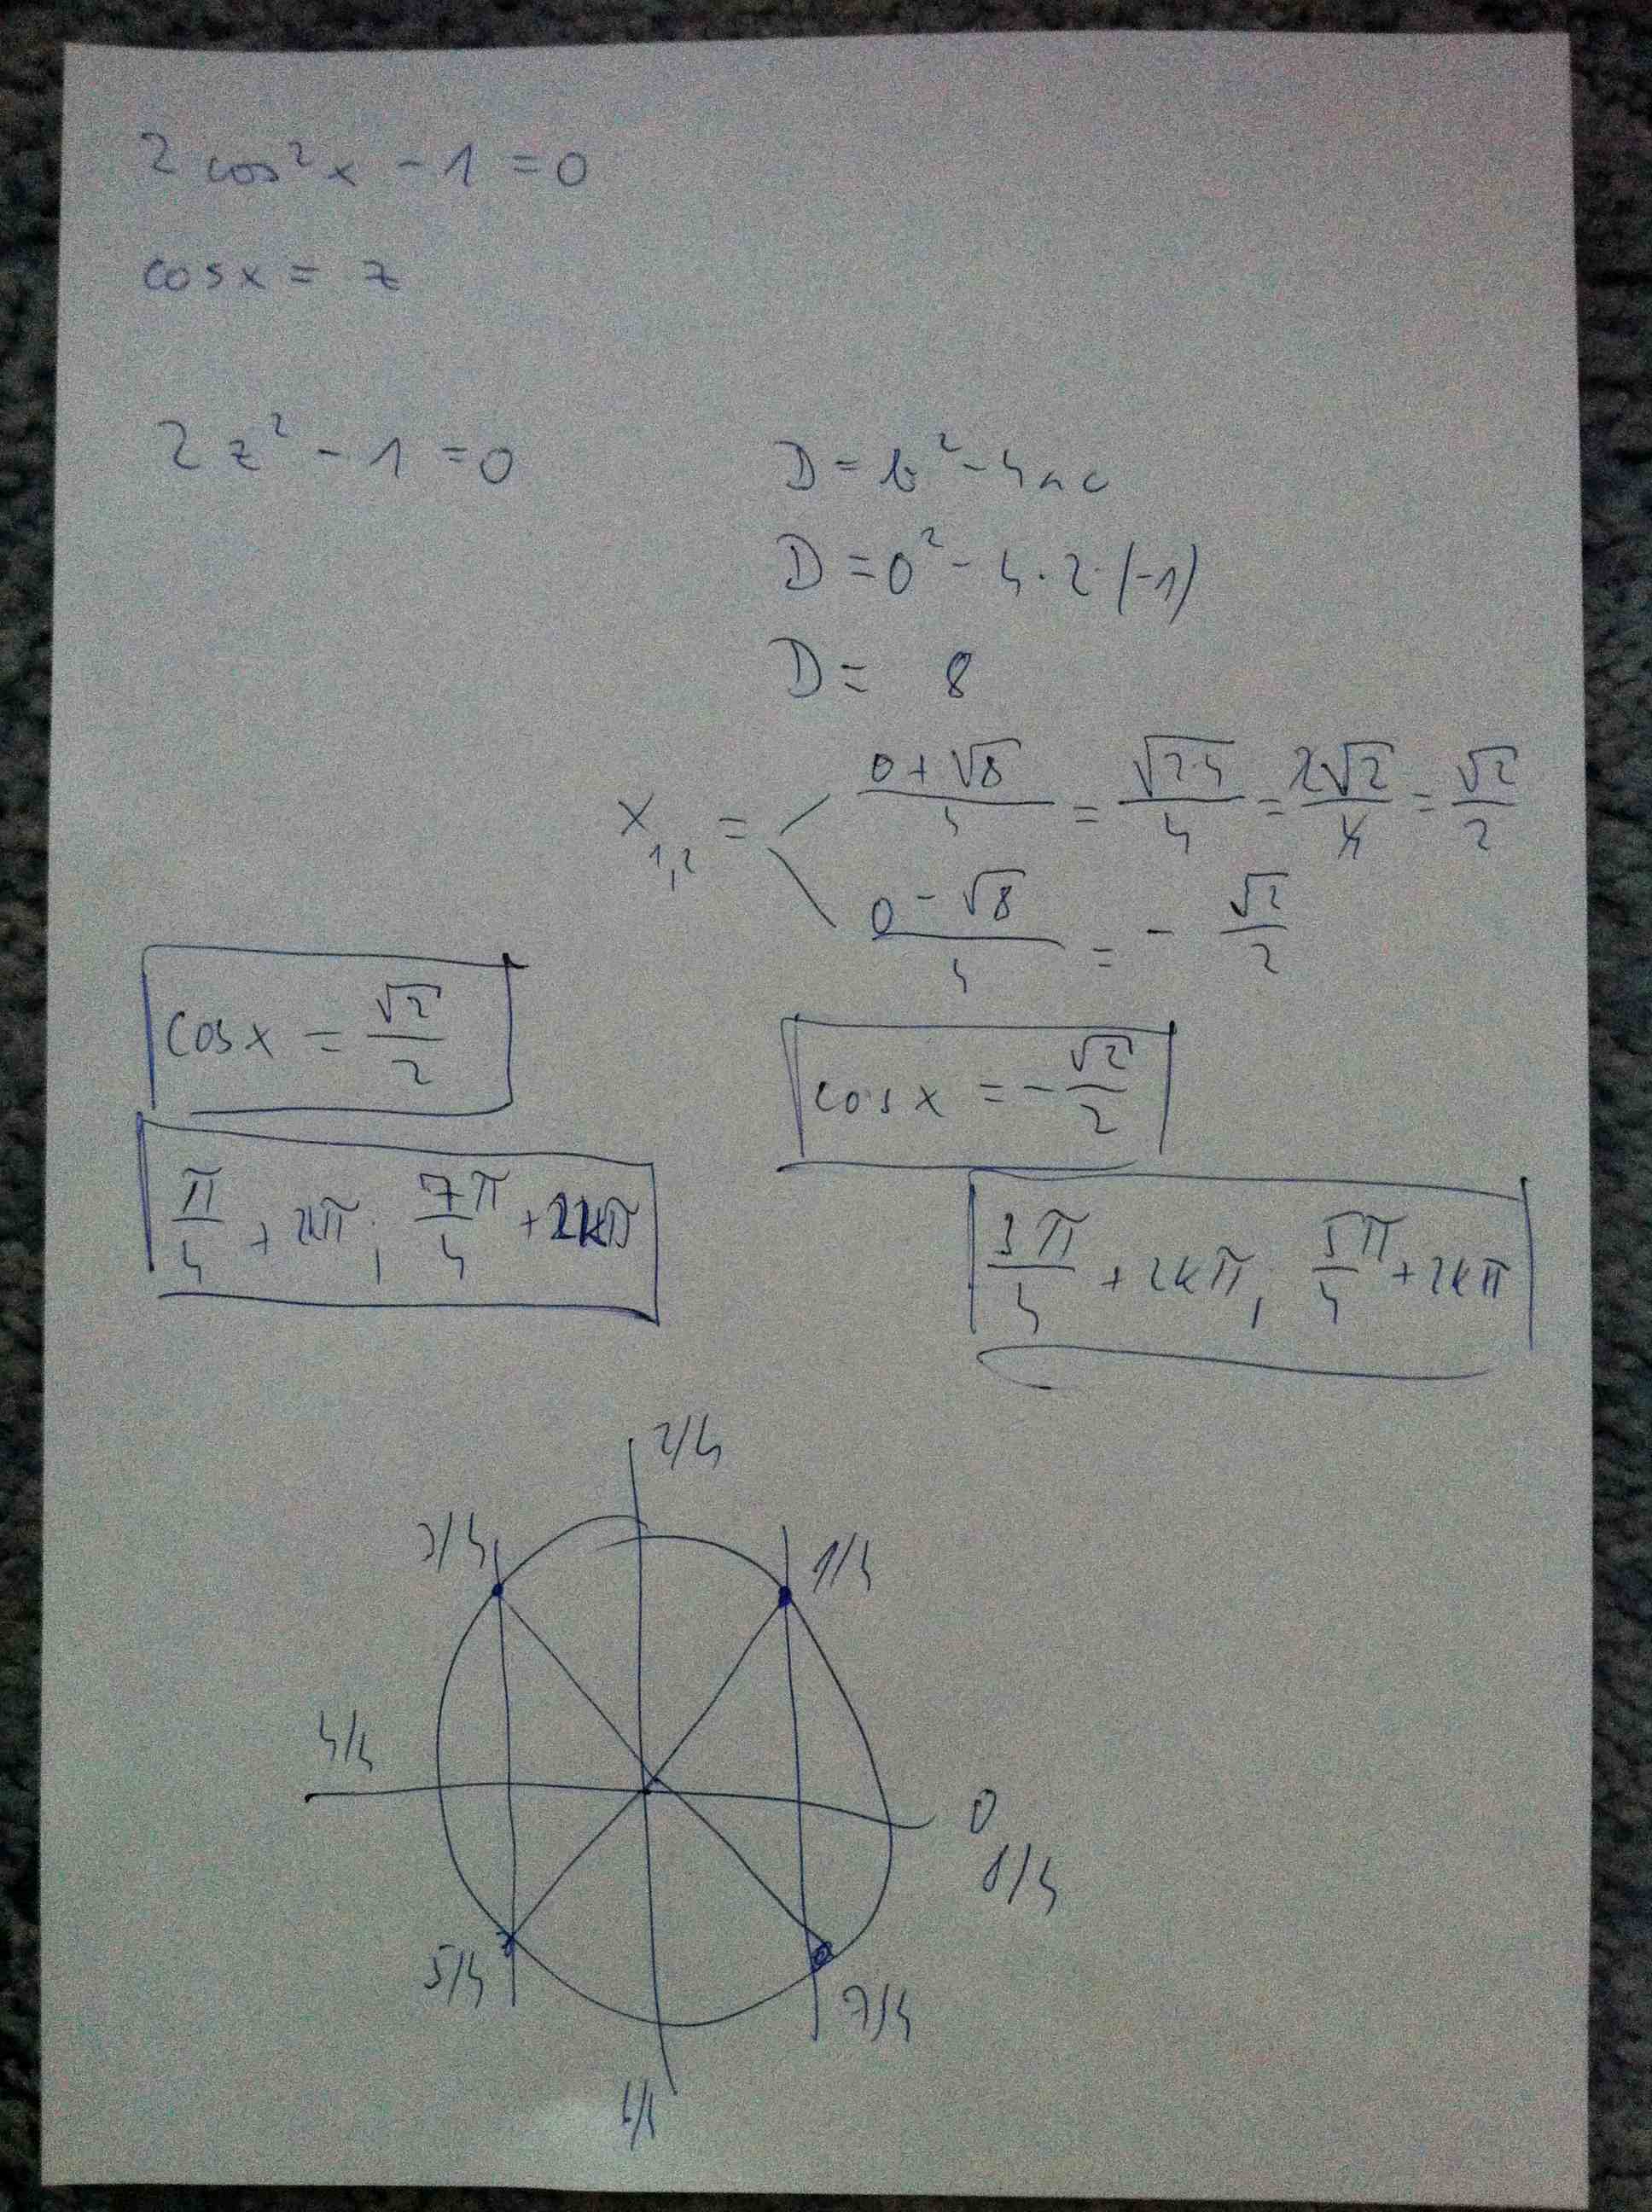 2 cos²x - 1 = 0
cosx = z
2z² - 1 = 0
D = b² - 4ac
D = 0² - 4·2·(-1)
D = 8
x₁,₂ = (0+√8)/4 = √(2·4)/4 = 2√2/4 = √2/2
(0-√8)/4 = -√2/2
cosx = √2/2
cosx = -√2/2
π/4 + 2kπ; 7π/4 + 2kπ
3π/4 + 2kπ; 5π/4 + 2kπ
2/4
3/4
1/4
4/4
0
8/4
5/4
7/4
6/4